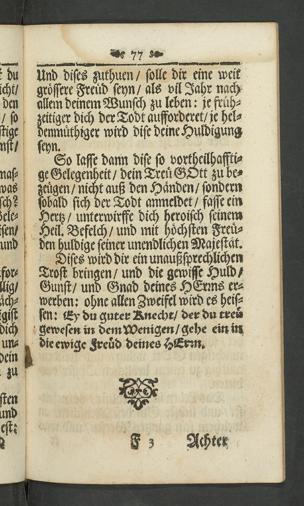 77
Und dises zuthuen / solle dir eine weit
grössere Freüd seyn / als vil Jahr nach
allem deinem Wunsch zu leben: je früh-
zeitiger dich der Todt aufforderet / je hel-
denmüthiger wird dise deine Huldigung
seyn.
So lasse dann dise so vortheilhaffti-
ge Gelegenheit / dein Treü GOtt zu be-
zeügen / nicht auß den Händen / sondern
sobald sich der Todt anmeldet / fasse ein
Hertz / unterwirffe dich heroisch seinem
Heil. Befelch / und mit höchsten Freü-
den huldige seiner unendlichen Majestät.
Dises wird dir ein unaußsprechlichen
Trost bringen / und die gewisse Huld /
Gunst / und Gnad deines HErrns er-
werben: ohne allen Zweifel wird es heis-
sen: Ey du guter Knecht / der du treü
gewesen in dem Wenigen / gehe ein in
die ewige Freüd deines HErrn.
F 3 Achter